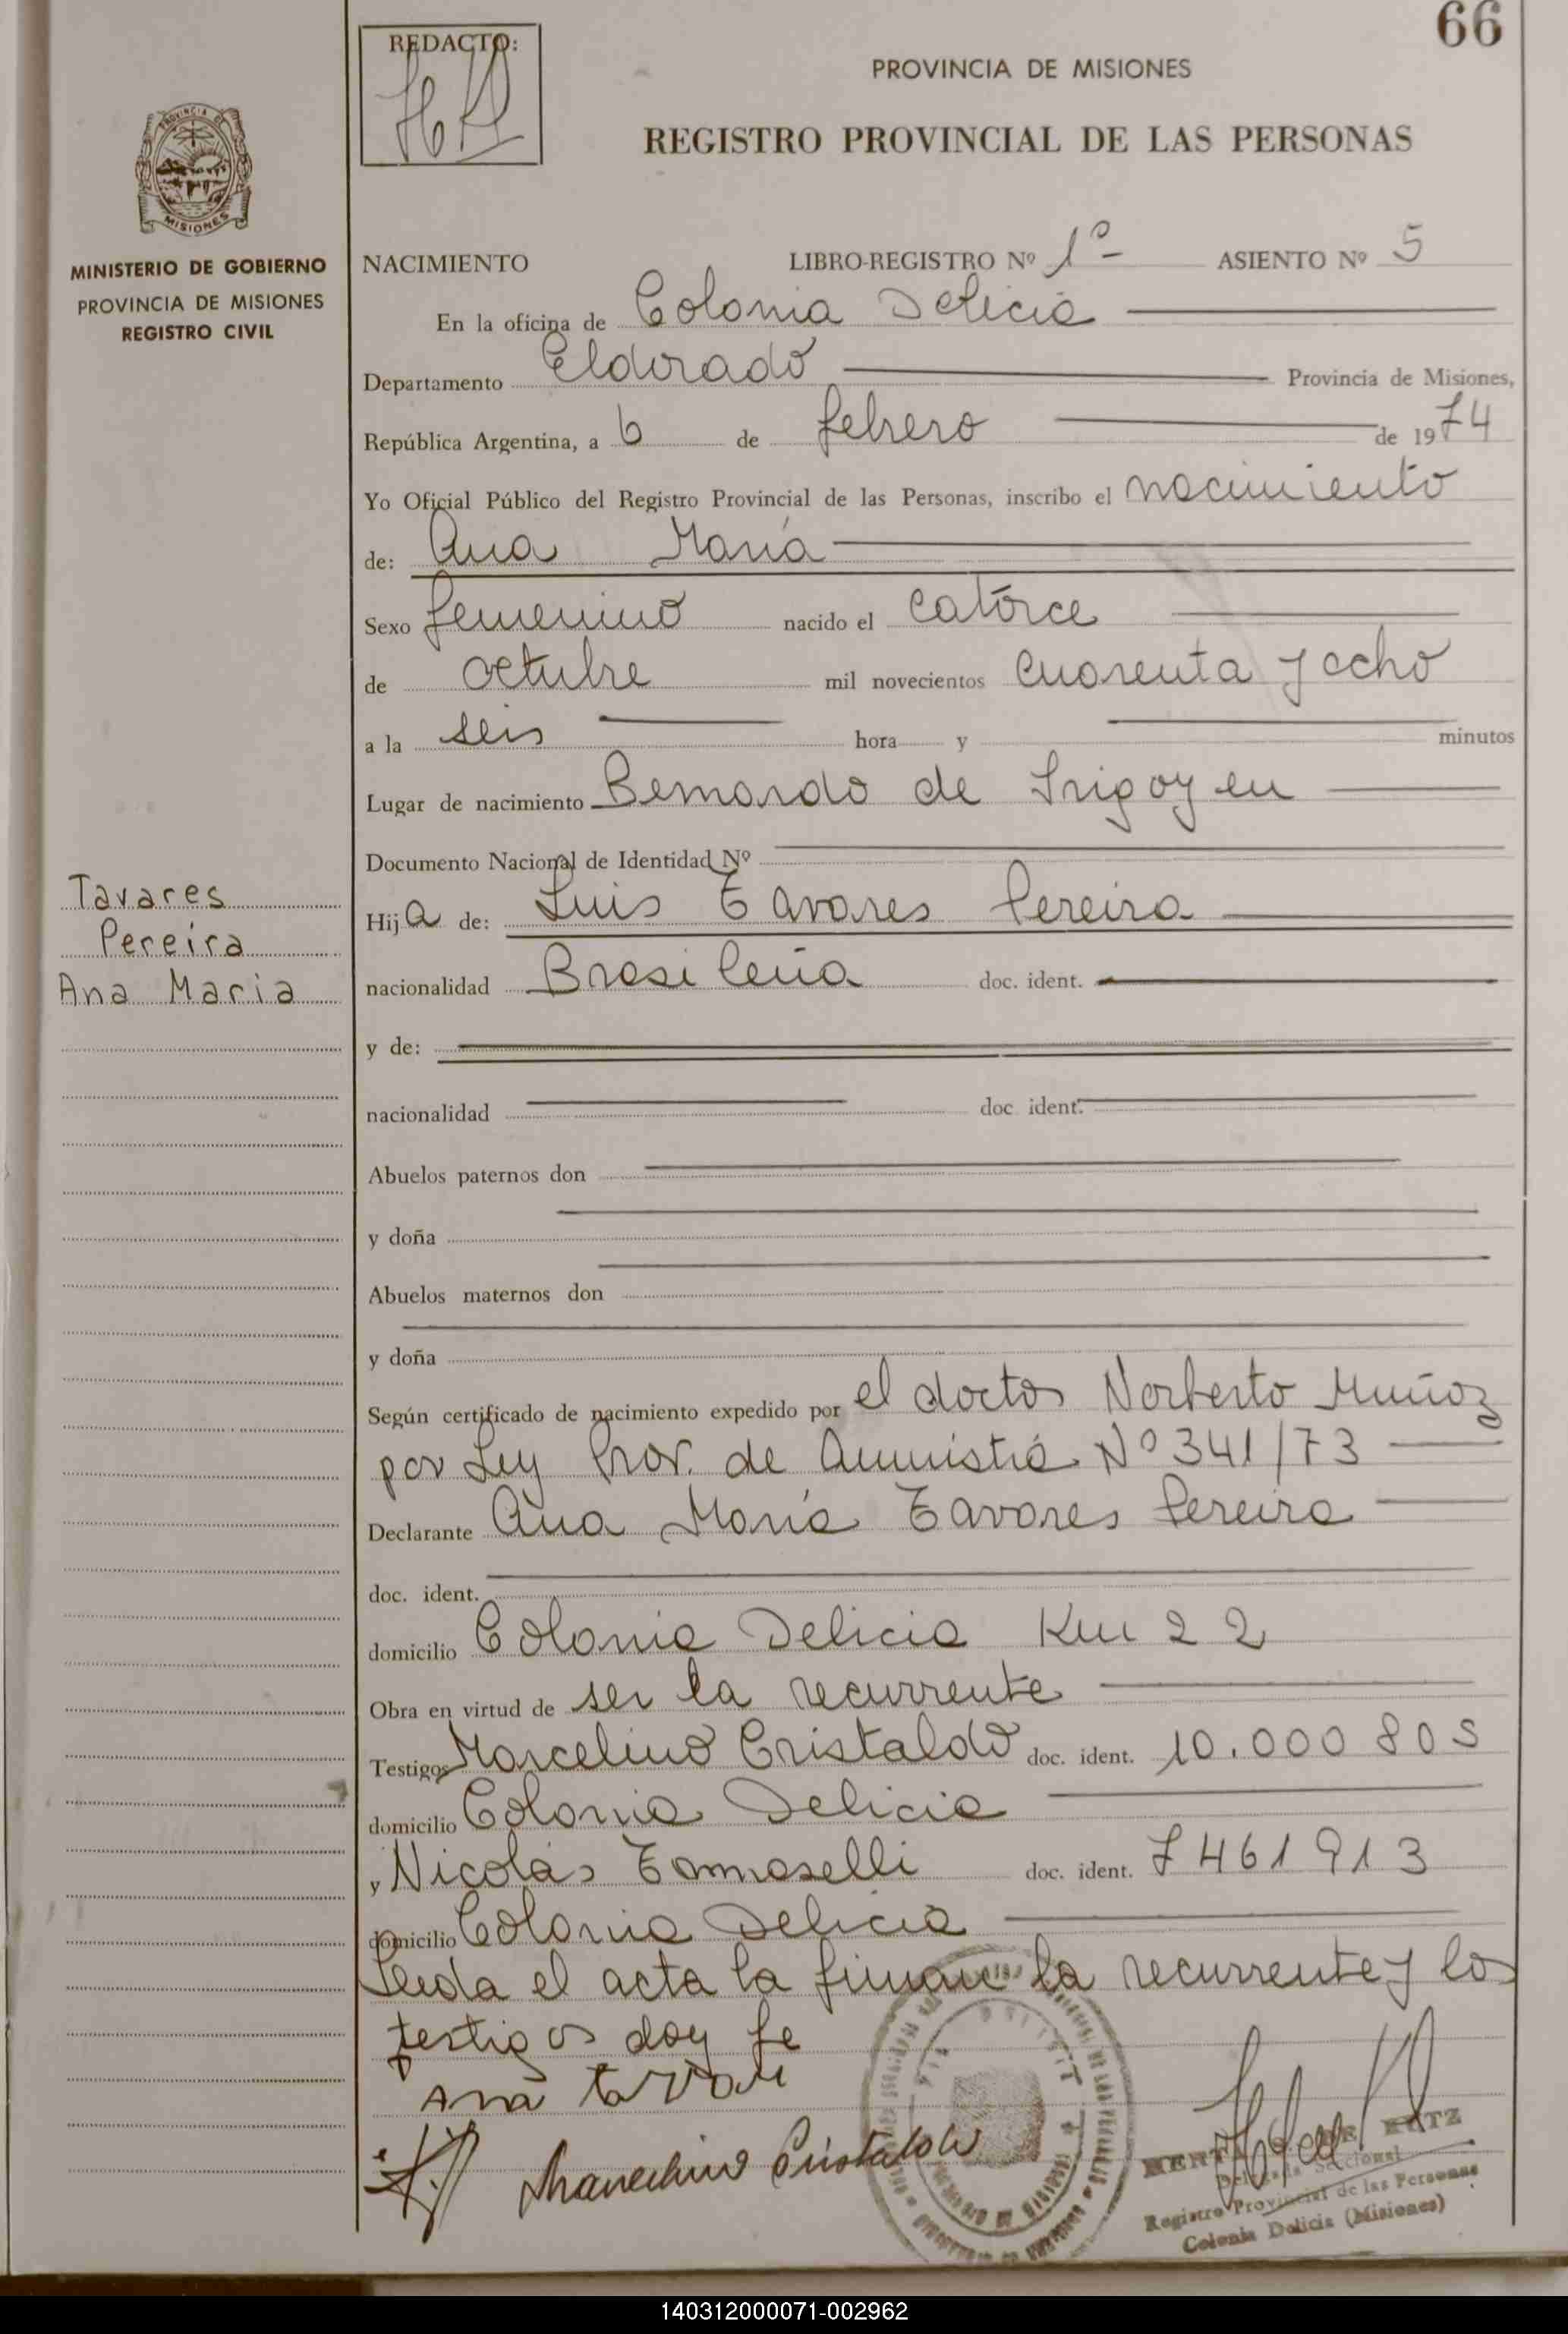 66
REDACTO:
PROVINCIA DE MISIONES
REGISTRO PROVINCIAL DE LAS PERSONAS
MISIONES
MINISTERIO DE GOBIERNO
PROVINCIA DE MISIONES
REGISTRO CIVIL
NACIMIENTO LIBRO-REGISTRO Nº 1º - ASIENTO Nº 5
En la oficina de Colonia Delicia
Departamento Eldorado Provincia de Misiones,
República Argentina, a 6 de febrero de 1974
Yo Oficial Público del Registro Provincial de las Personas, inscribo el nacimiento
de: Ana María
Sexo femenino nacido el catorce
de octubre mil novecientos cuarenta y ocho
a la seis hora y minutos
Lugar de nacimiento Bernardo de Irigoyen
Documento Nacional de Identidad Nº
Tavares
Pereira
Ana Maria
Hija de: Luis Tavares Pereira
nacionalidad Brasileña doc. ident.
y de:
nacionalidad doc. ident.
Abuelos paternos don
y doña
Abuelos maternos don
y doña
Según certificado de nacimiento expedido por el doctor Norberto Muñoz
por Ley Prov. de Amnistía Nº 341/73
Declarante Ana María Tavares Pereira
doc. ident.
domicilio Colonia Delicia Km 22
Obra en virtud de ser la recurrente
Testigos Marcelino Cristaldo doc. ident. 10.000 805
domicilio Colonia Delicia
y Nicolás Tomaselli doc. ident. 7461913
domicilio Colonia Delicia
Leida el acta la firman la recurrente y los
testigos doy fe
Ana Tavare
Marcelino Cristaldo
Delegada Seccional
Registro Provincial de las Personas
Colonia Delicia (Misiones)
140312000071-002962